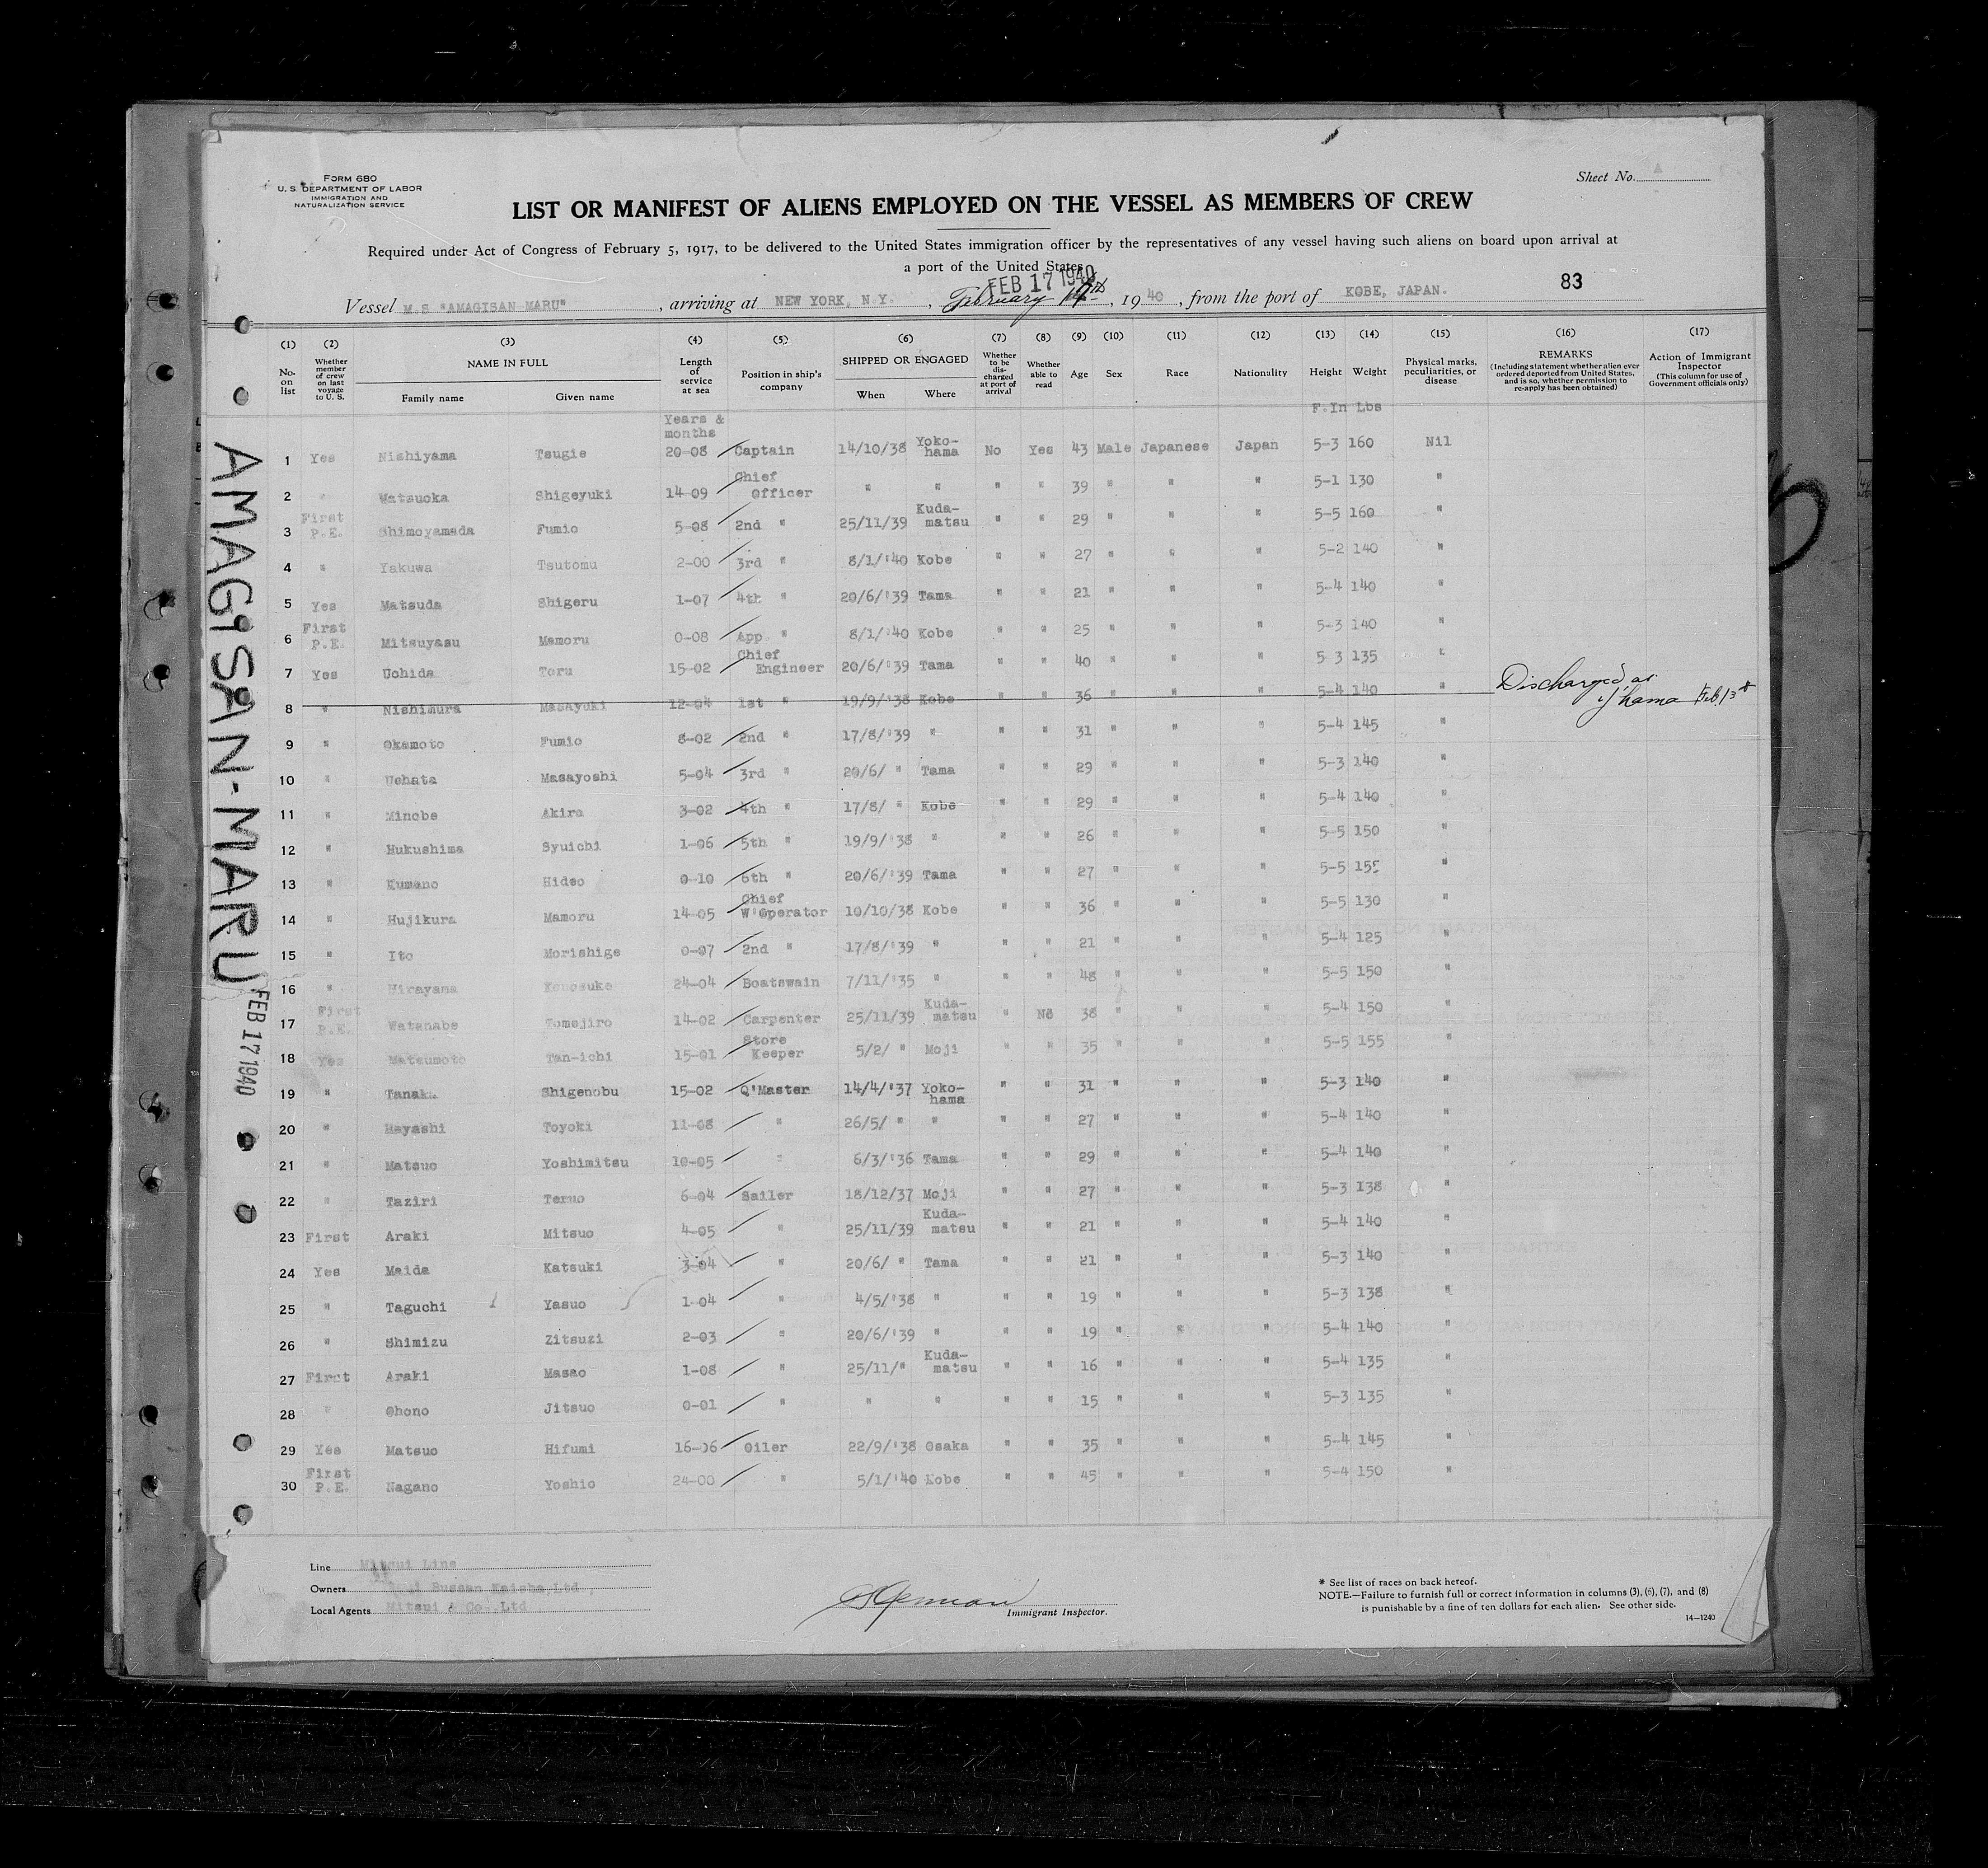 FORM 680
U. S. DEPARTMENT OF LABOR
IMMIGRATION AND
NATURALIZATION SERVICE
Sheet No.
LIST OR MANIFEST OF ALIENS EMPLOYED ON THE VESSEL AS MEMBERS OF CREW
Required under Act of Congress of February 5, 1917, to be delivered to the United States immigration officer by the representatives of any vessel having such aliens on board upon arrival at
a port of the United States
FEB 17 1940
83
Vessel M.S "AMAGISAN MARU", arriving at NEW YORK, N.Y., February, 1940, from the port of KOBE, JAPAN.
(1) (2) (3) (4) (5) (6) (7) (8) (9) (10) (11) (12) (13) (14) (15) (16) (17)
No. on list
Whether member of crew on last voyage to U. S.
NAME IN FULL
Family name Given name
Length of service at sea
Position in ship's company
SHIPPED OR ENGAGED
When Where
Whether to be discharged at port of arrival
Whether able to read
Age Sex Race Nationality Height Weight
Physical marks, peculiarities, or disease
REMARKS
(Including statement whether alien ever ordered deported from United States, and is so, whether permission to re-apply has been obtained)
Action of Immigrant Inspector
(This column for use of Government officials only)
Years & months F.In Lbs
1 Yes Nishiyama Tsugie 20-08 Captain 14/10/38 Yoko-hama No Yes 43 Male Japanese Japan 5-3 160 Nil
2 " Matsuoka Shigeyuki 14-09 Chief Officer " " " " 39 " " " 5-1 130 "
3 First P.E. Shimoyamada Fumio 5-08 2nd " 25/11/39 Kuda-matsu " " 29 " " " 5-5 160 "
4 " Yakuwa Tsutomu 2-00 3rd " 8/1/'40 Kobe " " 27 " " " 5-2 140 "
5 Yes Matsuda Shigeru 1-07 4th " 20/6/'39 Tama " " 21 " " " 5-4 140 "
6 First P.E. Mitsuyasu Mamoru 0-08 App. " 8/1/'40 Kobe " " 25 " " " 5-3 140 "
7 Yes Uchida Toru 15-02 Chief Engineer 20/6/'39 Tama " " 40 " " " 5 3 135 "
8 " Nishimura Masayuki 12-04 1st " 19/9/'38 Kobe " " 36 " " " 5-4 140 " Discharged at Y'hama Feb. 13th
9 " Okamoto Fumio 8-02 2nd " 17/8/'39 " " " 31 " " " 5-4 145 "
10 " Uehata Masayoshi 5-04 3rd " 20/6/ " Tama " " 29 " " " 5-3 140 "
11 " Minobe Akira 3-02 4th " 17/8/ " Kobe " " 29 " " " 5-4 140 "
12 " Hukushima Syuichi 1-06 5th " 19/9/'38 " " " 26 " " " 5-5 150 "
13 " Kumano Hideo 0-10 6th " 20/6/'39 Tama " " 27 " " " 5-5 155 "
14 " Hujikura Mamoru 14-05 Chief W'Operator 10/10/38 Kobe " " 36 " " " 5-5 130 "
15 " Ito Morishige 0-07 2nd " 17/8/'39 " " " 21 " " " 5-4 125 "
16 " Hirayama Konosuke 24-04 Boatswain 7/11/'35 " " " 48 " " " 5-5 150 "
17 First P.E. Watanabe Tomejiro 14-02 Carpenter 25/11/39 Kuda-matsu " No 38 " " " 5-4 150 "
18 Yes Matsumoto Tan-ichi 15-01 Store Keeper 5/2/ " Moji " " 35 " " " 5-5 155 "
19 " Tanaka Shigenobu 15-02 Q'Master 14/4/'37 Yoko-hama " " 31 " " " 5-3 140 "
20 " Hayashi Toyoki 11-08 " 26/5/ " " " " 27 " " " 5-4 140 "
21 " Matsuo Yoshimitsu 10-05 " 6/3/'36 Tama " " 29 " " " 5-4 140 "
22 " Taziri Teruo 6-04 Sailer 18/12/37 Moji " " 27 " " " 5-3 138 "
23 First Araki Mitsuo 4-05 " 25/11/39 Kuda-matsu " " 21 " " " 5-4 140 "
24 Yes Maida Katsuki 3-04 " 20/6/ " Tama " " 21 " " " 5-3 140 "
25 " Taguchi Yasuo 1-04 " 4/5/'38 " " " 19 " " " 5-3 138 "
26 " Shimizu Zitsuzi 2-03 " 20/6/'39 " " " 19 " " " 5-4 140 "
27 First Araki Masao 1-08 " 25/11/" Kuda-matsu " " 16 " " " 5-4 135 "
28 " Ohono Jitsuo 0-01 " " " " " 15 " " " 5-3 135 "
29 Yes Matsuo Hifumi 16-06 Oiler 22/9/'38 Osaka " " 35 " " " 5-4 145 "
30 First P.E. Nagano Yoshio 24-00 " 5/1/'40 Kobe " " 45 " " " 5-4 150 "
AMAGISAN-MARU
FEB 17 1940
Line Mitsui Line
Owners Bussan Kaisha, Ltd.
Local Agents Mitsui & Co., Ltd
Immigrant Inspector.
* See list of races on back hereof.
NOTE.—Failure to furnish full or correct information in columns (3), (6), (7), and (8)
is punishable by a fine of ten dollars for each alien. See other side.
14—1240